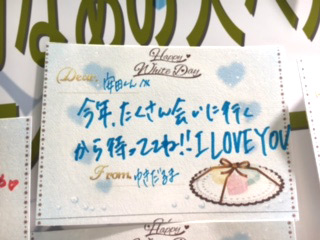 Happy
White Day
Dear. 安田くん
今年、たくさん会いに行く
から待っててね!! I LOVE YOU
From. ゆきだるま
Happy
White Day